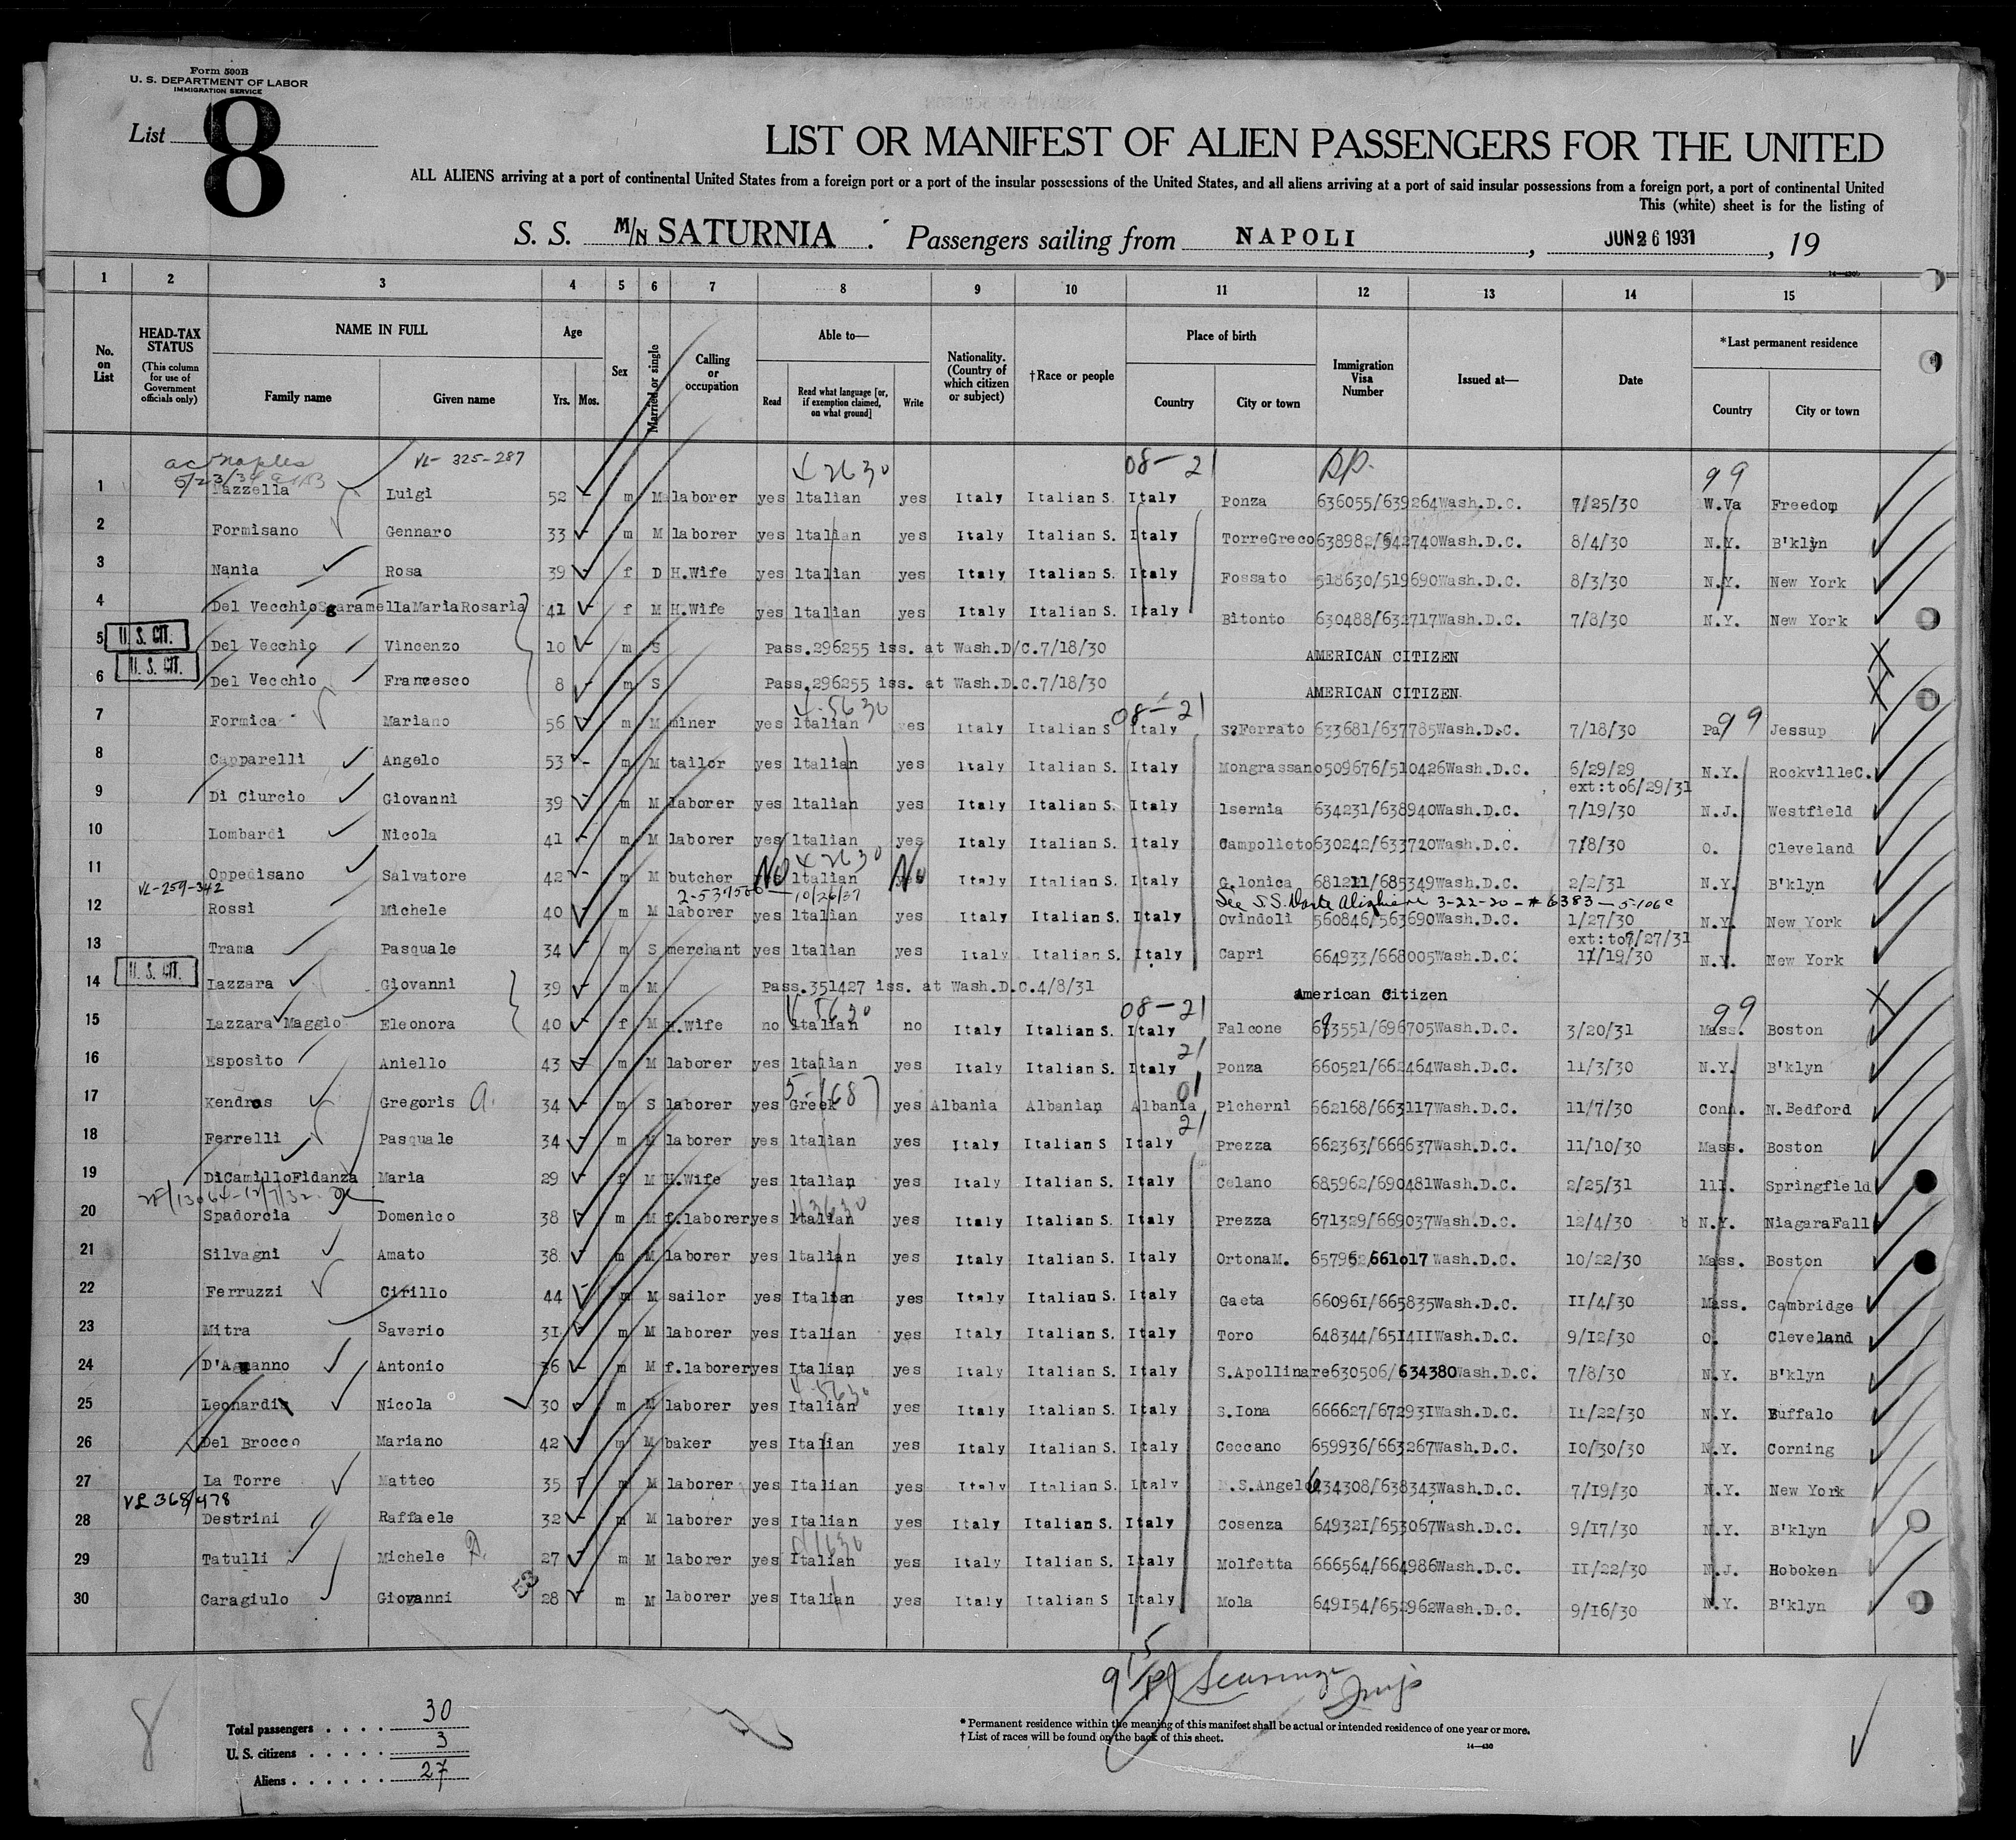 Form 500B
U. S. DEPARTMENT OF LABOR
IMMIGRATION SERVICE
List 8
LIST OR MANIFEST OF ALIEN PASSENGERS FOR THE UNITED
ALL ALIENS arriving at a port of continental United States from a foreign port or a port of the insular possessions of the United States, and all aliens arriving at a port of said insular possessions from a foreign port, a port of continental United
This (white) sheet is for the listing of
S. S. M/N SATURNIA . Passengers sailing from NAPOLI, JUN 26 1931, 19
1 2 3 4 5 6 7 8 9 10 11 12 13 14 15
No. on List
HEAD-TAX STATUS (This column for use of Government officials only)
NAME IN FULL Family name Given name
Age Yrs. Mos.
Sex
Married or single
Calling or occupation
Able to— Read Read what language [or, if exemption claimed, on what ground] Write
Nationality. (Country of which citizen or subject)
†Race or people
Place of birth Country City or town
Immigration Visa Number
Issued at—
Date
*Last permanent residence Country City or town
ac Naples VL- 325-287 4 2630 08-21 99
1 Mazzella Luigi 52 m M laborer yes Italian yes Italy Italian S. Italy Ponza 636055/639264 Wash.D.C. 7/25/30 W.Va Freedom
2 Formisano Gennaro 33 m M laborer yes Italian yes Italy Italian S. Italy TorreGreco 638982/642740 Wash.D.C. 8/4/30 N.Y. B'klyn
3 Nania Rosa 39 f D H.Wife yes Italian yes Italy Italian S. Italy Fossato 518630/519690 Wash.D.C. 8/3/30 N.Y. New York
4 Del Vecchio Sgaramella Maria Rosaria 41 f M H.Wife yes Italian yes Italy Italian S. Italy Bitonto 630488/632717 Wash.D.C. 7/8/30 N.Y. New York
5 U. S. CIT. Del Vecchio Vincenzo 10 m S Pass.296255 iss. at Wash.D/C.7/18/30 AMERICAN CITIZEN
6 U. S. CIT. Del Vecchio Francesco 8 m S Pass.296255 iss. at Wash.D.C.7/18/30 AMERICAN CITIZEN
4-5630 08-21 99
7 Formica Mariano 56 m M miner yes Italian yes Italy Italian S Italy S.Ferrato 633681/637785 Wash.D.C. 7/18/30 Pa Jessup
8 Capparelli Angelo 53 m M tailor yes Italian yes Italy Italian S. Italy Mongrassano 509676/510426 Wash.D.C. 6/29/29 N.Y. RockvilleC.
ext:to6/29/31
9 Di Ciurcio Giovanni 39 m M laborer yes Italian yes Italy Italian S. Italy Isernia 634231/638940 Wash.D.C. 7/19/30 N.J. Westfield
10 Lombardi Nicola 41 m M laborer yes Italian yes Italy Italian S. Italy Campolieto 630242/633720 Wash.D.C. 7/8/30 O. Cleveland
4 2630
11 Oppedisano Salvatore 42 m M butcher No Italian No Italy Italian S. Italy G.Ionica 681211/685349 Wash.D.C. 2/2/31 N.Y. B'klyn
VL-259-342 10/26/37 See S.S. Dante Alighieri 3-22-20 - # 6383
12 Rossi Michele 40 m M laborer yes Italian yes Italy Italian S. Italy Ovindoli 560846/563690 Wash.D.C. 1/27/30 N.Y. New York
13 Trama Pasquale 34 m S merchant yes Italian yes Italy Italian S. Italy Capri 664933/668005 Wash.D.C. 11/19/30 N.Y. New York
14 U. S. CIT. Lazzara Giovanni 39 m M Pass.351427 iss. at Wash.D.C.4/8/31 American Citizen
08-21 99
15 Lazzara Maggio Eleonora 40 f M H.Wife no Italian no Italy Italian S. Italy Falcone 693551/696705 Wash.D.C. 3/20/31 Mass. Boston
16 Esposito Aniello 43 m M laborer yes Italian yes Italy Italian S. Italy Ponza 660521/662464 Wash.D.C. 11/3/30 N.Y. B'klyn
17 Kendros Gregoris a. 34 m S laborer yes Greek yes Albania Albanian Albania Picherni 662168/663117 Wash.D.C. 11/7/30 Conn. N.Bedford
18 Ferrelli Pasquale 34 m M laborer yes Italian yes Italy Italian S Italy Prezza 662363/666637 Wash.D.C. 11/10/30 Mass. Boston
19 DiCamilloFidanza Maria 29 f M H.Wife yes Italian yes Italy Italian S. Italy Celano 685962/690481 Wash.D.C. 2/25/31 Ill. Springfield
20 Spadorcia Domenico 38 m M f.laborer yes Italian yes Italy Italian S. Italy Prezza 671329/669037 Wash.D.C. 12/4/30 N.Y. NiagaraFall
21 Silvagni Amato 38 m M laborer yes Italian yes Italy Italian S. Italy OrtonaM. 657952/661017 Wash.D.C. 10/22/30 Mass. Boston
22 Ferruzzi Cirillo 44 m M sailor yes Italian yes Italy Italian S. Italy Gaeta 660961/665835 Wash.D.C. 11/4/30 Mass. Cambridge
23 Mitra Saverio 31 m M laborer yes Italian yes Italy Italian S. Italy Toro 648344/651411 Wash.D.C. 9/12/30 O. Cleveland
24 D'Aguanno Antonio 36 m M f.laborer yes Italian yes Italy Italian S. Italy S.Apollinare 630506/634380 Wash.D.C. 7/8/30 N.Y. B'klyn
25 Leonardis Nicola 30 m M laborer yes Italian yes Italy Italian S. Italy S.Iona 666627/672931 Wash.D.C. 11/22/30 N.Y. Buffalo
26 Del Brocco Mariano 42 m M baker yes Italian yes Italy Italian S. Italy Ceccano 659936/663267 Wash.D.C. 10/30/30 N.Y. Corning
27 La Torre Matteo 35 m M laborer yes Italian yes Italy Italian S. Italy M.S.Angelo 634308/638343 Wash.D.C. 7/19/30 N.Y. New York
VL 368/478
28 Destrini Raffaele 32 m M laborer yes Italian yes Italy Italian S. Italy Cosenza 649321/653067 Wash.D.C. 9/17/30 N.Y. B'klyn
29 Tatulli Michele 27 m M laborer yes Italian yes Italy Italian S. Italy Molfetta 666564/664986 Wash.D.C. 11/22/30 N.J. Hoboken
30 Caragiulo Giovanni 28 m M laborer yes Italian yes Italy Italian S Italy Mola 649154/652962 Wash.D.C. 9/16/30 N.Y. B'klyn
8
Total passengers . . . . 30
U. S. citizens . . . . . 3
Aliens . . . . . . 27
*Permanent residence within the meaning of this manifest shall be actual or intended residence of one year or more.
†List of races will be found on the back of this sheet.
14—430